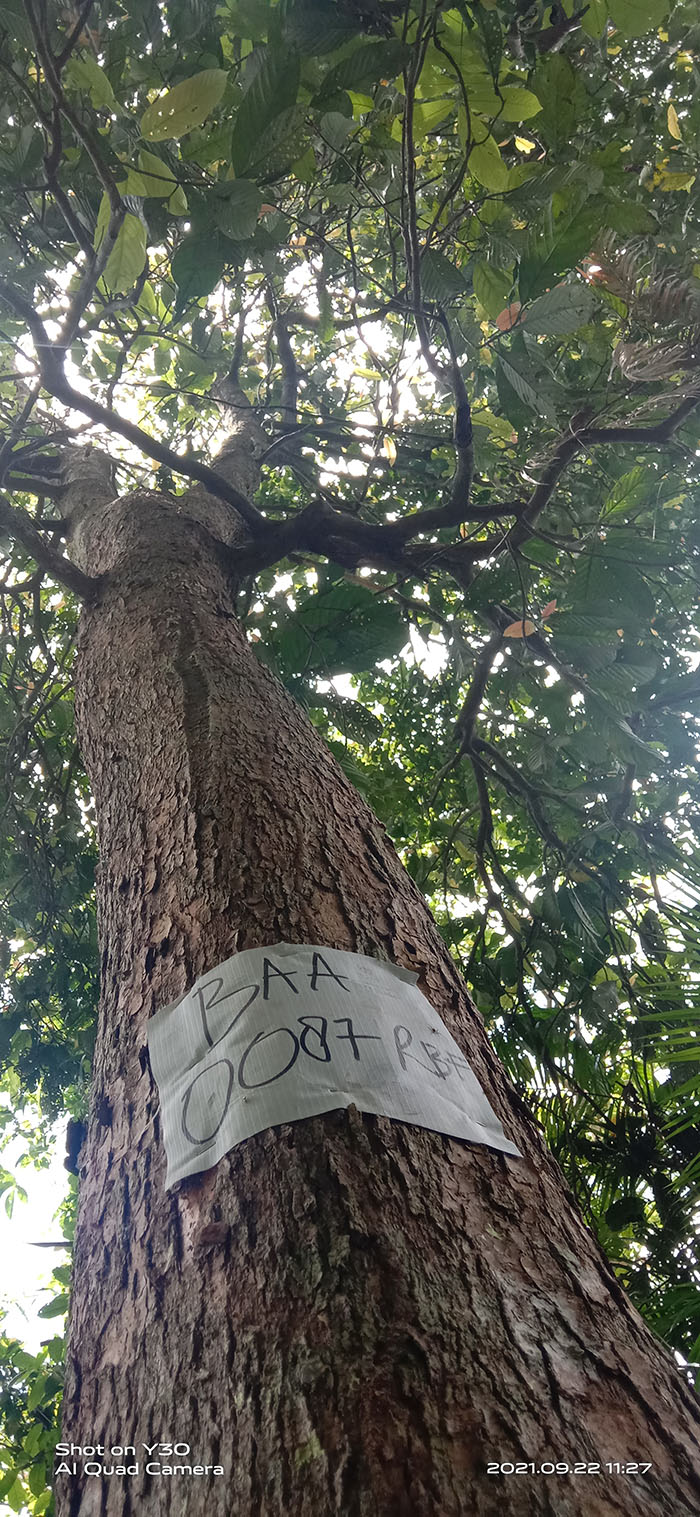 BAA
0087 RBF
Shot on Y30
AI Quad Camera
2021.09.22 11:27